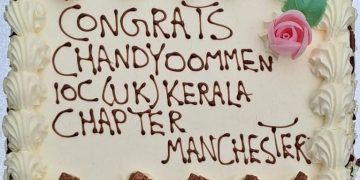 CONGRATS
CHANDYOOMMEN
IOC(UK)KERALA
CHAPTER
MANCHESTER